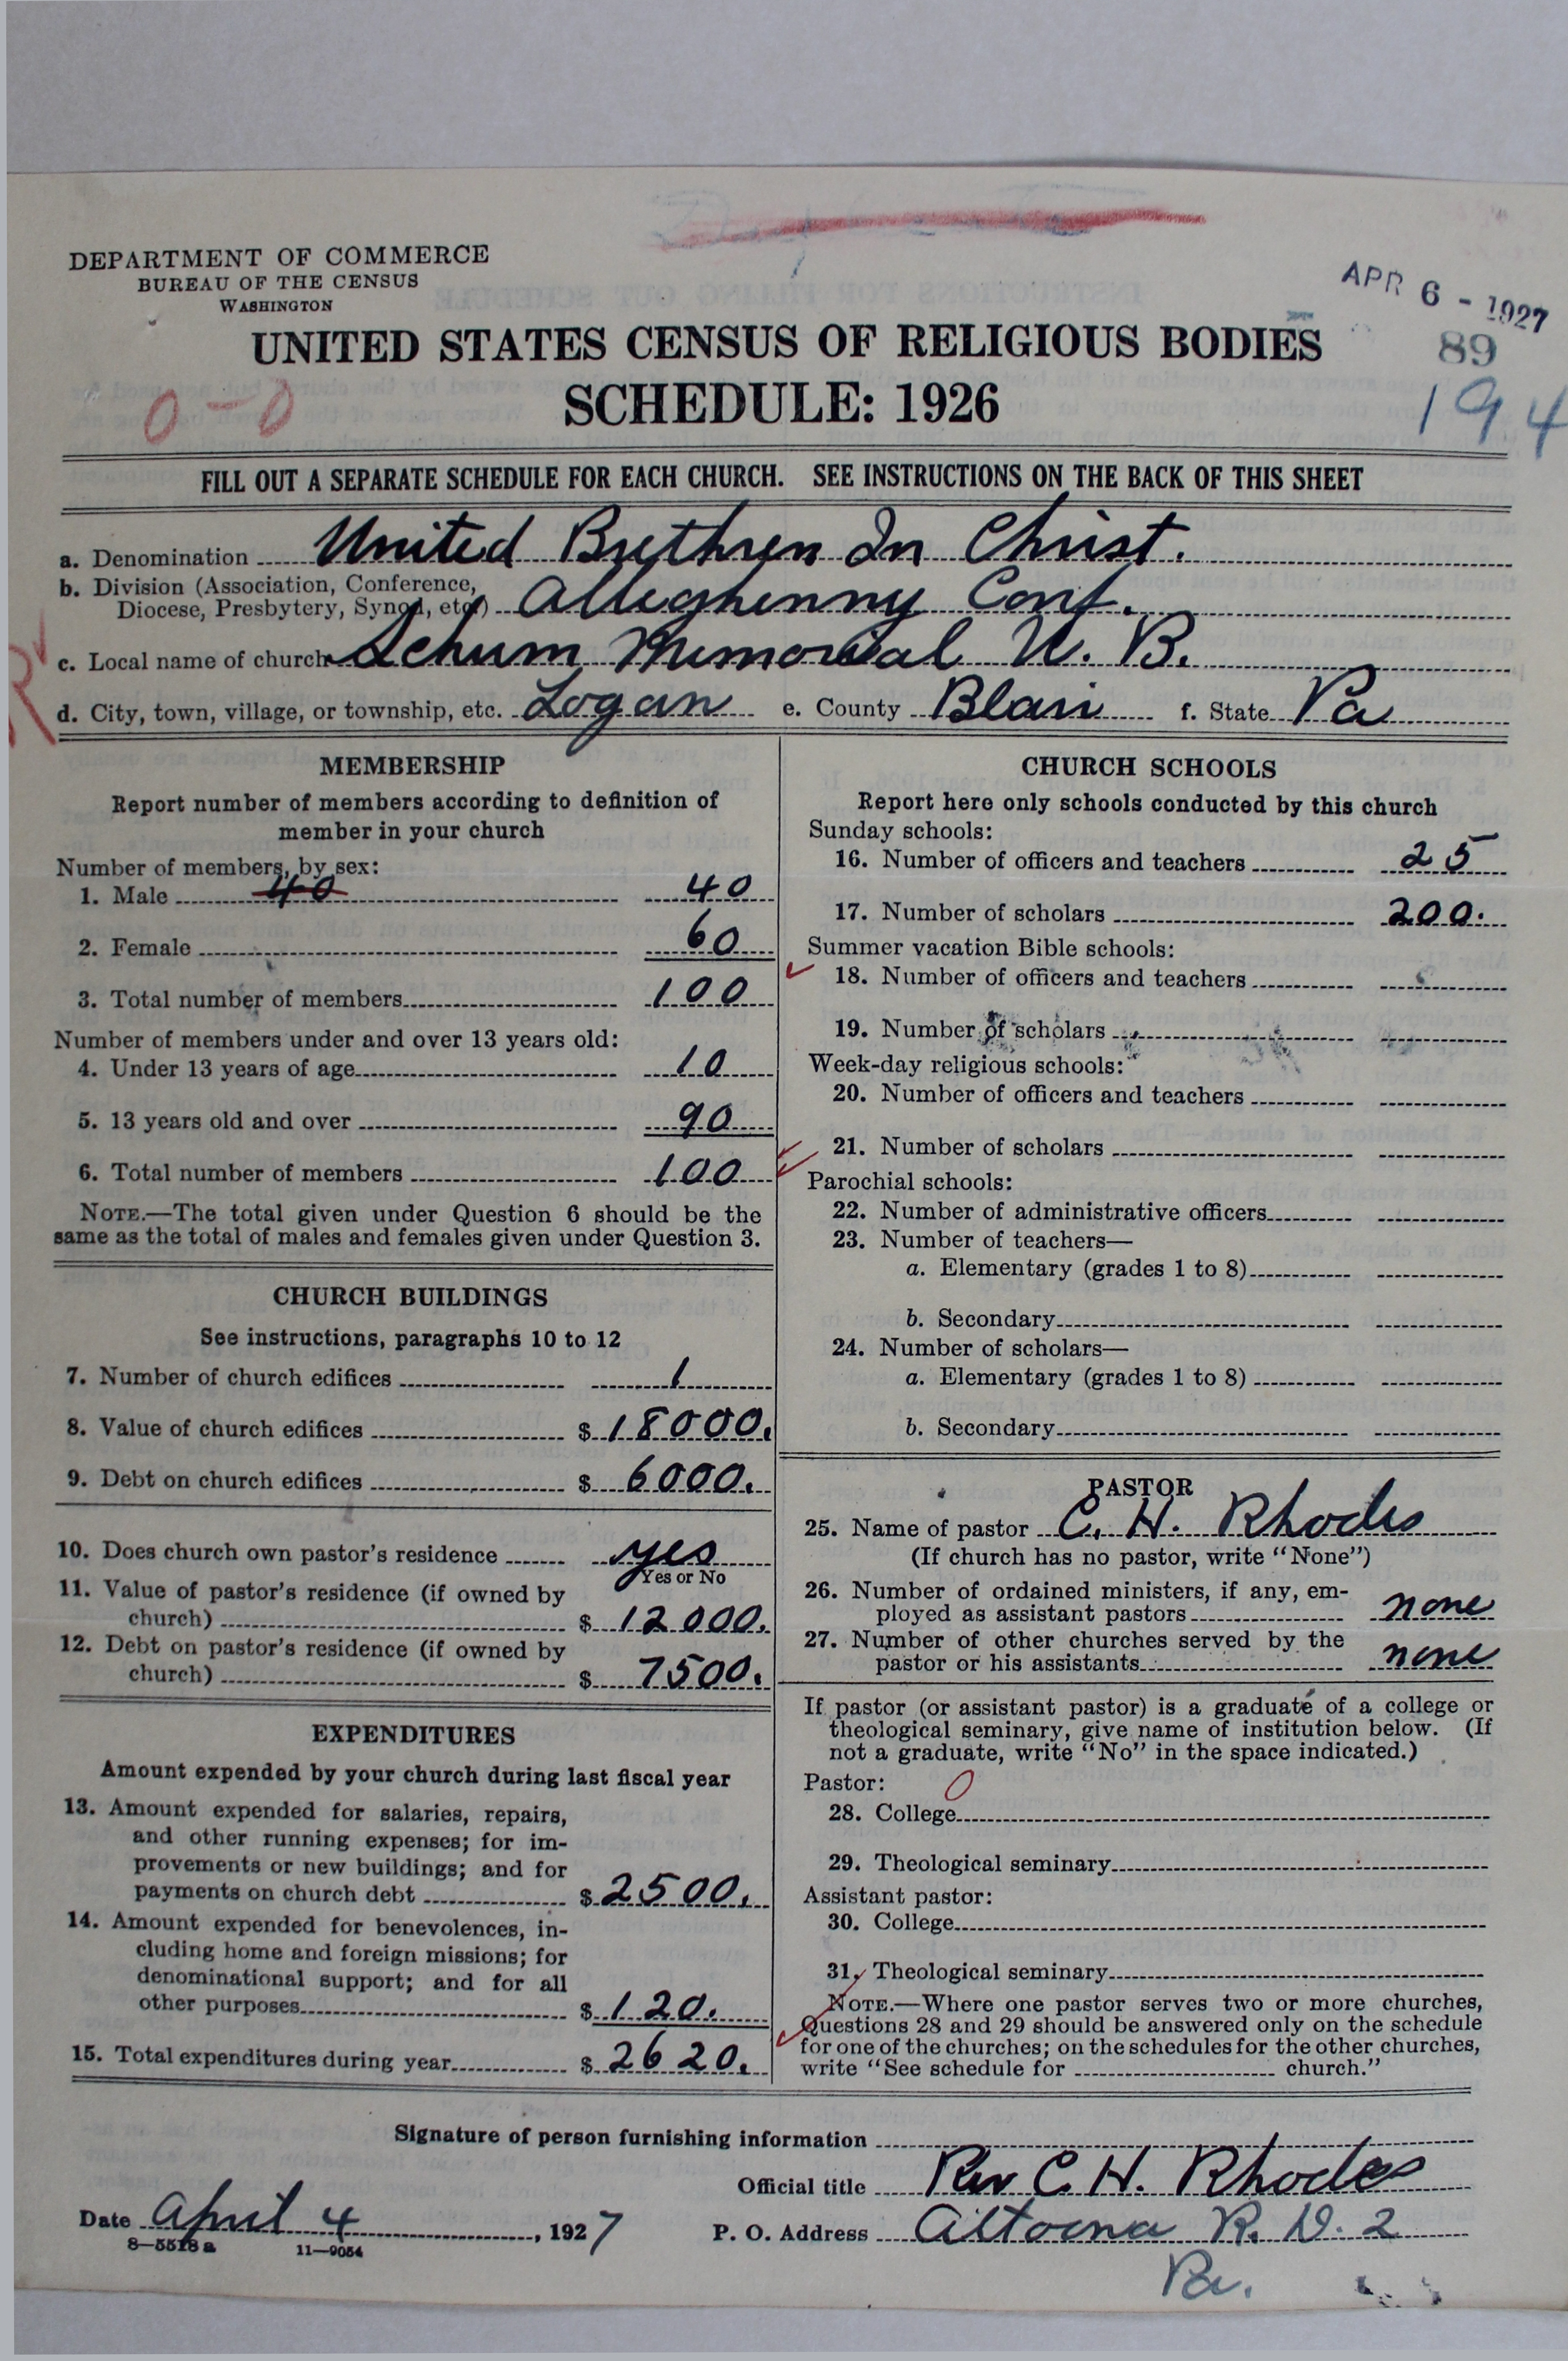 DEPARTMENT OF COMMERCE
BUREAU OF THE CENSUS
WASHINGTON
APR 6 - 1927
UNITED STATES CENSUS OF RELIGIOUS BODIES
89
SCHEDULE: 1926
194
0-0
FILL OUT A SEPARATE SCHEDULE FOR EACH CHURCH. SEE INSTRUCTIONS ON THE BACK OF THIS SHEET
a. Denomination United Brethren In Christ.
b. Division (Association, Conference,
Diocese, Presbytery, Synod, etc.) Alleghenny Conf.
c. Local name of church Schum Memorial U. B.
R
d. City, town, village, or township, etc. Logan e. County Blair f. State Pa
MEMBERSHIP
Report number of members according to definition of
member in your church
Number of members, by sex:
1. Male 40 40
2. Female 60
3. Total number of members 100
Number of members under and over 13 years old:
4. Under 13 years of age 10
5. 13 years old and over 90
6. Total number of members 100
NOTE.—The total given under Question 6 should be the
same as the total of males and females given under Question 3.
CHURCH BUILDINGS
See instructions, paragraphs 10 to 12
7. Number of church edifices 1
8. Value of church edifices $ 18000.
9. Debt on church edifices $ 6000.
10. Does church own pastor's residence yes
Yes or No
11. Value of pastor's residence (if owned by
church) $ 12000.
12. Debt on pastor's residence (if owned by
church) $ 7500.
EXPENDITURES
Amount expended by your church during last fiscal year
13. Amount expended for salaries, repairs,
and other running expenses; for im-
provements or new buildings; and for
payments on church debt $ 2500.
14. Amount expended for benevolences, in-
cluding home and foreign missions; for
denominational support; and for all
other purposes $ 120.
15. Total expenditures during year $ 2620.
CHURCH SCHOOLS
Report here only schools conducted by this church
Sunday schools:
16. Number of officers and teachers 25
17. Number of scholars 200.
Summer vacation Bible schools:
18. Number of officers and teachers
19. Number of scholars
Week-day religious schools:
20. Number of officers and teachers
21. Number of scholars
Parochial schools:
22. Number of administrative officers
23. Number of teachers—
a. Elementary (grades 1 to 8)
b. Secondary
24. Number of scholars—
a. Elementary (grades 1 to 8)
b. Secondary
PASTOR
25. Name of pastor C. H. Rhodes
(If church has no pastor, write "None")
26. Number of ordained ministers, if any, em-
ployed as assistant pastors none
27. Number of other churches served by the
pastor or his assistants none
If pastor (or assistant pastor) is a graduate of a college or
theological seminary, give name of institution below. (If
not a graduate, write "No" in the space indicated.)
Pastor: 0
28. College
29. Theological seminary
Assistant pastor:
30. College
31. Theological seminary
NOTE.—Where one pastor serves two or more churches,
Questions 28 and 29 should be answered only on the schedule
for one of the churches; on the schedules for the other churches,
write "See schedule for church."
Signature of person furnishing information
Official title Rev C. H. Rhodes
Date April 4, 1927 P. O. Address Altoona R. D. 2
8—5518a 11—9054
Pa.